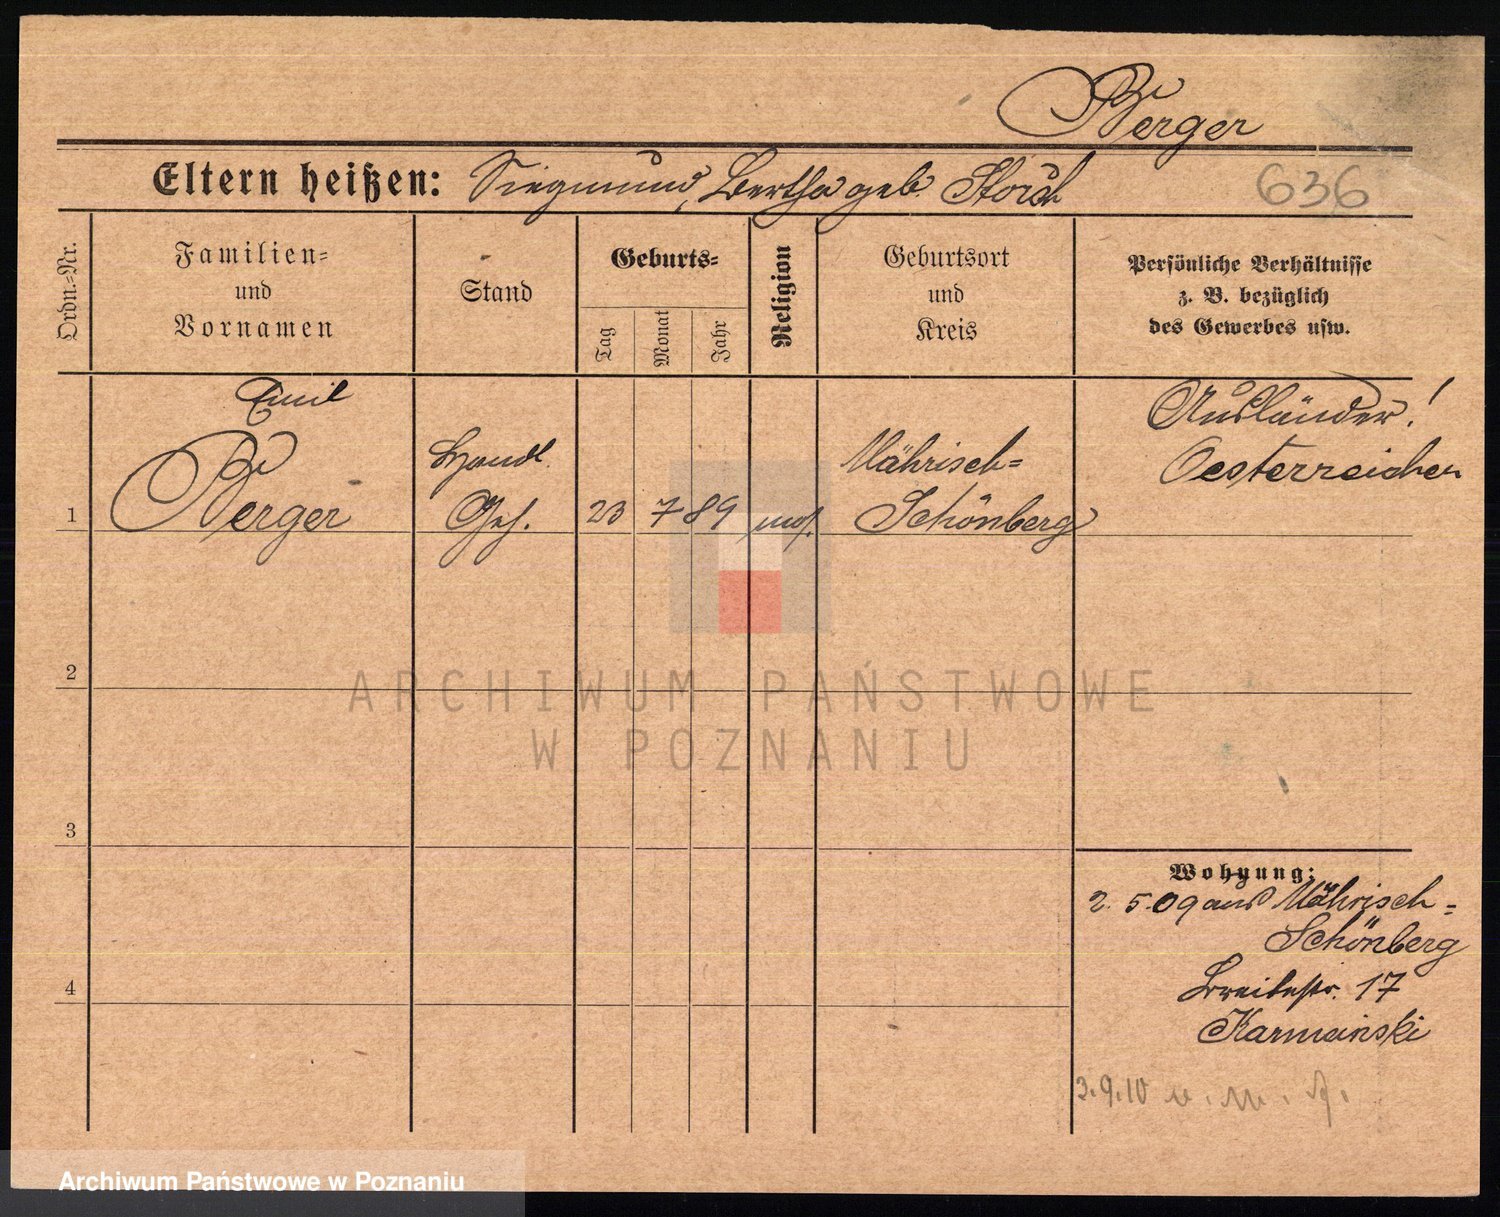 Berger
Eltern heißen: Siegmund, Bertha geb. Storch
636
Ordn.-Nr.
Familien-
und
Vornamen
Stand
Geburts-
Tag
Monat
Jahr
Religion
Geburtsort
und
Kreis
Persönliche Verhältnisse
z. B. bezüglich
des Gewerbes usw.
Emil
Berger
Handl.
Geh.
1
23 7 89 mos.
Mährisch-
Schönberg
Ausländer!
Oesterreicher
2
3
4
Wohnung:
2. 5. 09 aus Mährisch-
Schönberg
Breitestr. 17
Karminski
3.9.10
ARCHIWUM PAŃSTWOWE
W POZNANIU
Archiwum Państwowe w Poznaniu